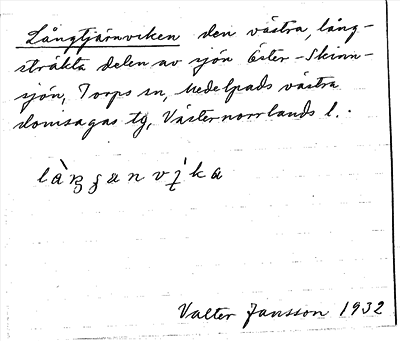 Långtjärnviken den västra, lång-
sträkta delen av sjön Öster-Skinn-
sjön, Torps sn, Medelpads västra
domsagas tg, Västernorrlands l.
Valter Jansson 1932